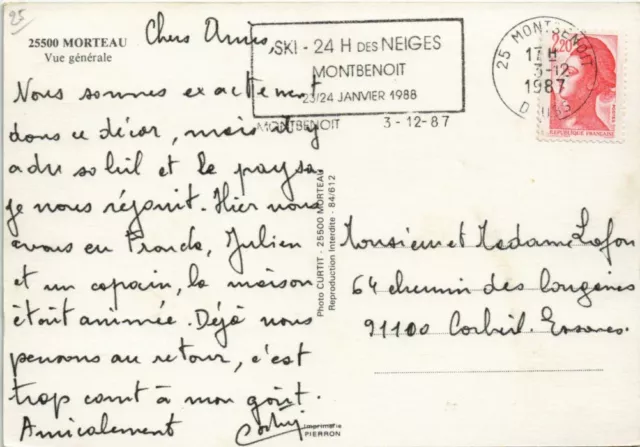 25
25500 MORTEAU
Vue générale
Chers Amis,
Nous sommes exactement
dans ce décor, mais
a du soleil et le paysa
je nous réjouit. Hier nous
avons eu Julien
et un copain, la maison
était animée. Déjà nous
pensons au retour, c'est
trop court à mon goût.
Amicalement
SKI - 24 H DES NEIGES
MONTBENOIT
23/24 JANVIER 1988
MONTBENOIT 3-12-87
25 MONTBENOIT
17 H
3-12
1987
DOUBS
2,20
REPUBLIQUE FRANCAISE
Photo CURTIT - 25500 MORTEAU
Reproduction Interdite - 84/612
Monsieur et Madame Lafon
64 chemin des Longaines
91100 Corbeil. Essones.
Imprimerie
PIERRON